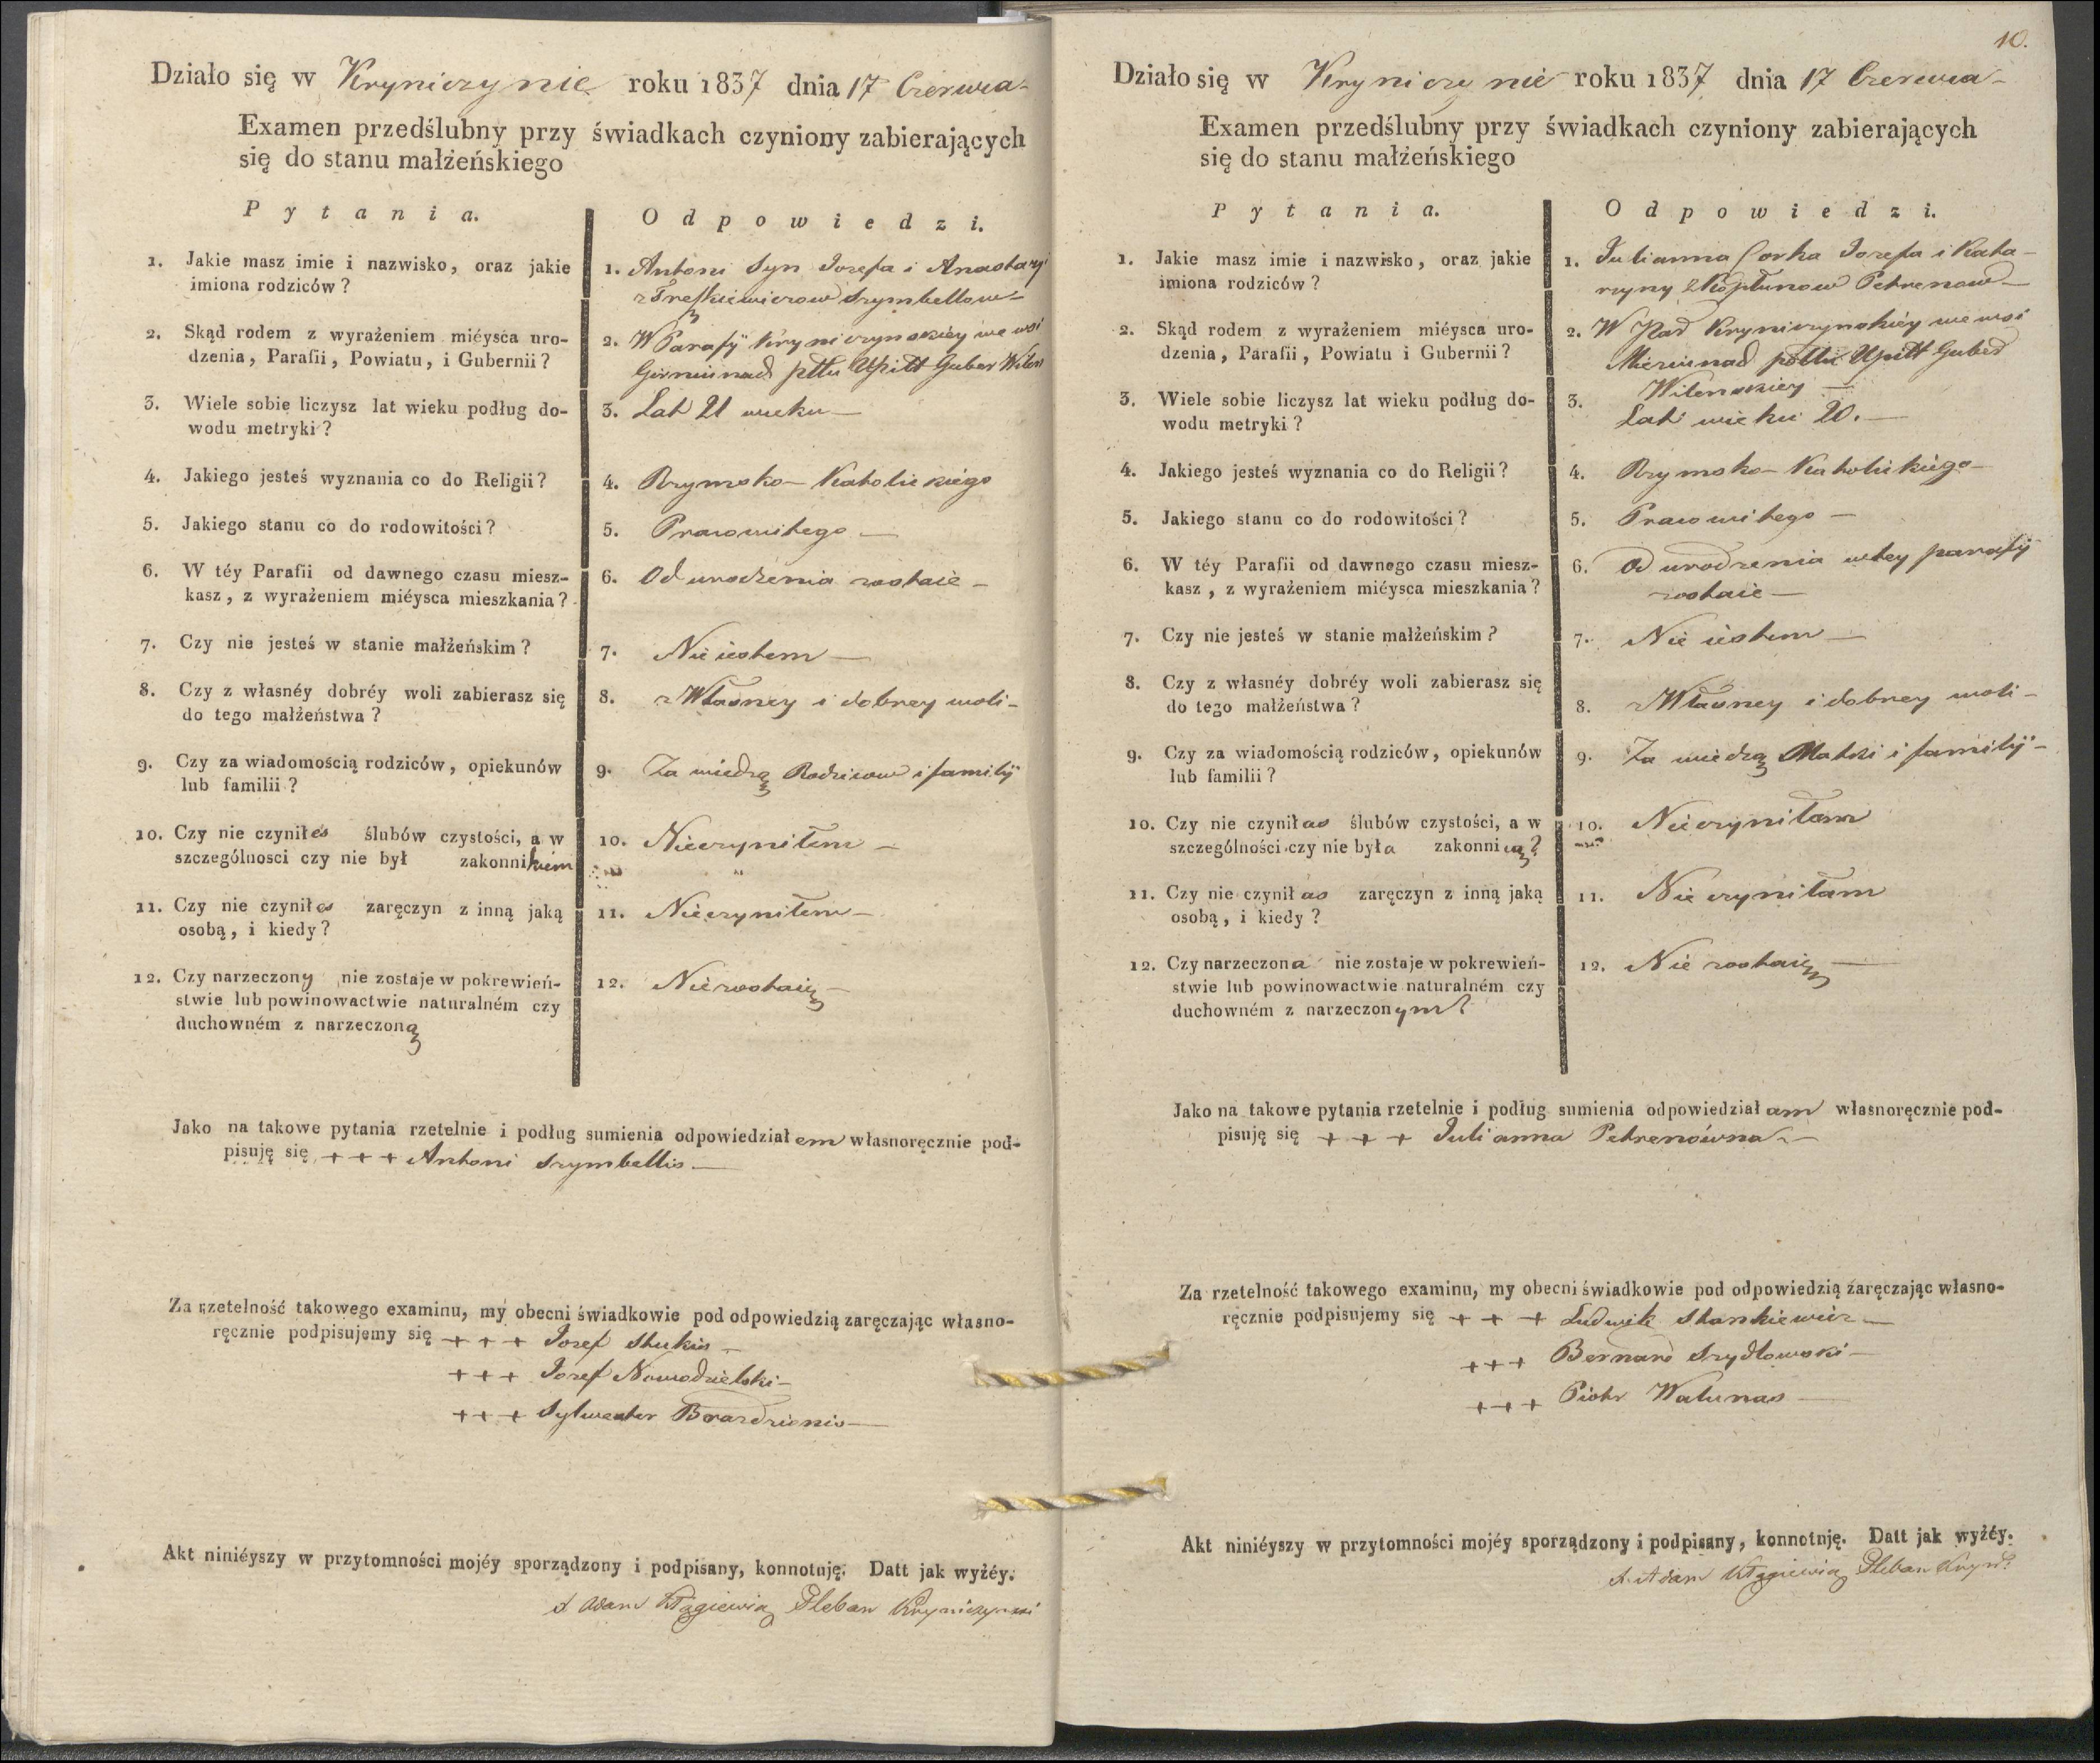 Działo się w Kryniczynie roku 1837 dnia 17 Czerwca
Examen przedślubny przy świadkach czyniony zabierających
się do stanu małżeńskiego
Pytania.
Odpowiedzi.
1. Jakie masz imie i nazwisko, oraz jakie
imiona rodziców?
1. Antoni Syn Jozefa i Anastazyi
Szymbellow
2. Skąd rodem z wyrażeniem miéysca uro-
dzenia, Parafii, Powiatu, i Gubernii?
2. W Parafÿ Kryniczynskiéy we wsi
pttu Upitt Guber Wilen
3. Wiele sobie liczysz lat wieku podług do-
wodu metryki?
3. Lat 21 wieku
4. Jakiego jesteś wyznania co do Religii?
4. Rzymsko-Katolickiégo
5. Jakiego stanu co do rodowitości?
5. Prawowitego
6. W téy Parafii od dawnego czasu miesz-
kasz, z wyrażeniem miéysca mieszkania?
6. Od urodzenia zostaie
7. Czy nie jesteś w stanie małżeńskim?
7. Nie iestem
8. Czy z własnéy dobréy woli zabierasz się
do tego małżeństwa?
8. z Własney i dobrey woli
9. Czy za wiadomością rodziców, opiekunów
lub familii?
9. Za wiedzą Rodzicow i familÿ
10. Czy nie czyniłeś ślubów czystości, a w
szczególnosci czy nie był zakonnikiem
10. Nieczyniłem
11. Czy nie czyniłeś zaręczyn z inną jaką
osobą, i kiedy?
11. Nieczyniłem
12. Czy narzeczony nie zostaje w pokrewień-
stwie lub powinowactwie naturalném czy
duchowném z narzeczoną
12. Niezostaię
Jako na takowe pytania rzetelnie i podług sumienia odpowiedziałem własnoręcznie pod-
pisuję się + + + Antoni Szymbellis
Za rzetelność takowego examinu, my obecni świadkowie pod odpowiedzią zaręczając własno-
ręcznie podpisujemy się + + + Jozef Stukis
+ + + Jozef Nowodzielski
+ + + Sylwester Brazdzionis
Akt niniéyszy w przytomności mojéy sporządzony i podpisany, konnotuję. Datt jak wyżéy.
X Adam Pleban Kryniczynski
10.
Działo się w Kryniczynie roku 1837 dnia 17 Czerwca
Examen przedślubny przy świadkach czyniony zabierających
się do stanu małżeńskiego
Pytania.
Odpowiedzi.
1. Jakie masz imie i nazwisko, oraz jakie
imiona rodziców?
1. Julianna Corka Jozefa i Kata-
rzyny z Kopłunow Petrenow
2. Skąd rodem z wyrażeniem miéysca uro-
dzenia, Parafii, Powiatu i Gubernii?
2. W Kryniczynskiéy we wsi
pottu Upitt Guber
Wilenskiey
3. Wiele sobie liczysz lat wieku podług do-
wodu metryki?
3. Lat wieku 20.
4. Jakiego jesteś wyznania co do Religii?
4. Rzymsko-Katolickiégo
5. Jakiego stanu co do rodowitości?
5. Prawowitego
6. W téy Parafii od dawnego czasu miesz-
kasz, z wyrażeniem miéysca mieszkania?
6. Od urodzenia wtey parafÿ
zostaie
7. Czy nie jesteś w stanie małżeńskim?
7. Nie iestem
8. Czy z własnéy dobréy woli zabierasz się
do tego małżeństwa?
8. z Własney i dobrey woli
9. Czy za wiadomością rodziców, opiekunów
lub familii?
9. Za wiedzą Matki i familÿ
10. Czy nie czyniłas ślubów czystości, a w
szczególności czy nie była zakonnicą?
10. Nieczyniłam
11. Czy nie czyniłas zaręczyn z inną jaką
osobą, i kiedy?
11. Nie czyniłam
12. Czy narzeczona nie zostaje w pokrewień-
stwie lub powinowactwie naturalném czy
duchowném z narzeczonym?
12. Nie zostaię
Jako na takowe pytania rzetelnie i podług sumienia odpowiedziałam własnoręcznie pod-
pisuję się + + + Julianna Petrenówna
Za rzetelność takowego examinu, my obecni świadkowie pod odpowiedzią zaręczając własno-
ręcznie podpisujemy się + + + Ludwik Stankiewicz
+ + + Bernard Szydłowski
+ + + Piotr Walunas
Akt niniéyszy w przytomności mojéy sporządzony i podpisany, konnotuję. Datt jak wyżéy.
X. Adam Pleban